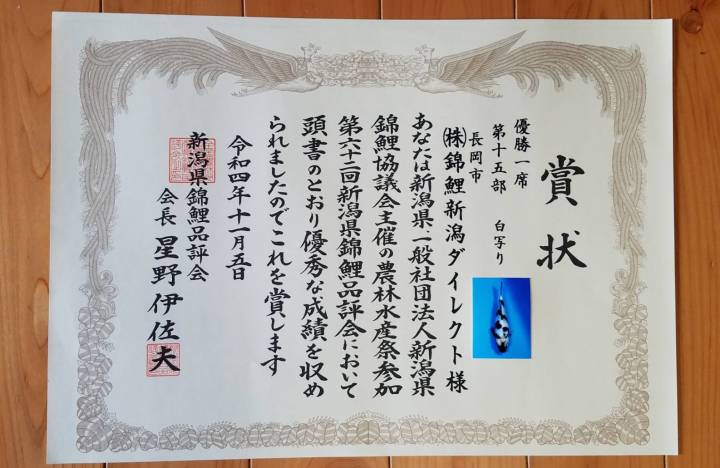 賞状
優勝一席
第十五部 白写り
長岡市
㈱錦鯉新潟ダイレクト様
あなたは新潟県、一般社団法人新潟県
錦鯉協議会主催の農林水産祭参加
第六十二回新潟県錦鯉品評会において
頭書のとおり優秀な成績を収め
られましたのでこれを賞します
令和四年十一月五日
新潟県錦鯉品評会
会長 星野伊佐夫